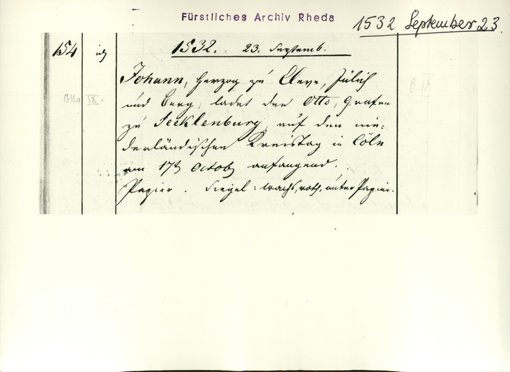 Fürstliches Archiv Rheda
1532 September 23.
154
1532. 23. Septemb.
Johann, Herzog zu Cleve, Jülich
und Berg, ladet den Otto, Grafen
zu Tecklenburg, auf den nie-
derländischen Kreistag in Cöln
am 17ð Octob anfangend.
Papier. Siegel: Wachs, roth, unter Papier.
Otto IX.